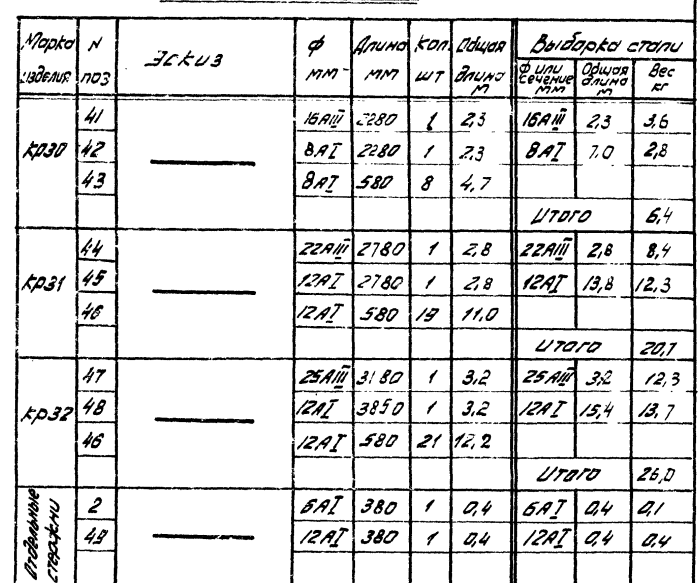 Марка изделия | N поз | Эскиз | ф мм | Длина мм | Кол. шт | Общая длина м | Выборка стали
ф или сечение мм | Общая длина м | Вес кг
КР30 | 41 | 16АIII | 2280 | 1 | 2,3 | 16АIII | 2,3 | 3,6
42 | 8АI | 2280 | 1 | 2,3 | 8АI | 7,0 | 2,8
43 | 8АI | 580 | 8 | 4,7
Итого | 6,4
КР31 | 44 | 22АIII | 2780 | 1 | 2,8 | 22АIII | 2,8 | 8,4
45 | 12АI | 2780 | 1 | 2,8 | 12АI | 13,8 | 12,3
46 | 12АI | 580 | 19 | 11,0
Итого | 20,7
КР32 | 47 | 25АIII | 3180 | 1 | 3,2 | 25АIII | 3,2 | 12,3
48 | 12АI | 3850 | 1 | 3,2 | 12АI | 15,4 | 13,7
46 | 12АI | 580 | 21 | 12,2
Итого | 26,0
Отдельные стержни | 2 | 6АI | 380 | 1 | 0,4 | 6АI | 0,4 | 0,1
49 | 12АI | 380 | 1 | 0,4 | 12АI | 0,4 | 0,4